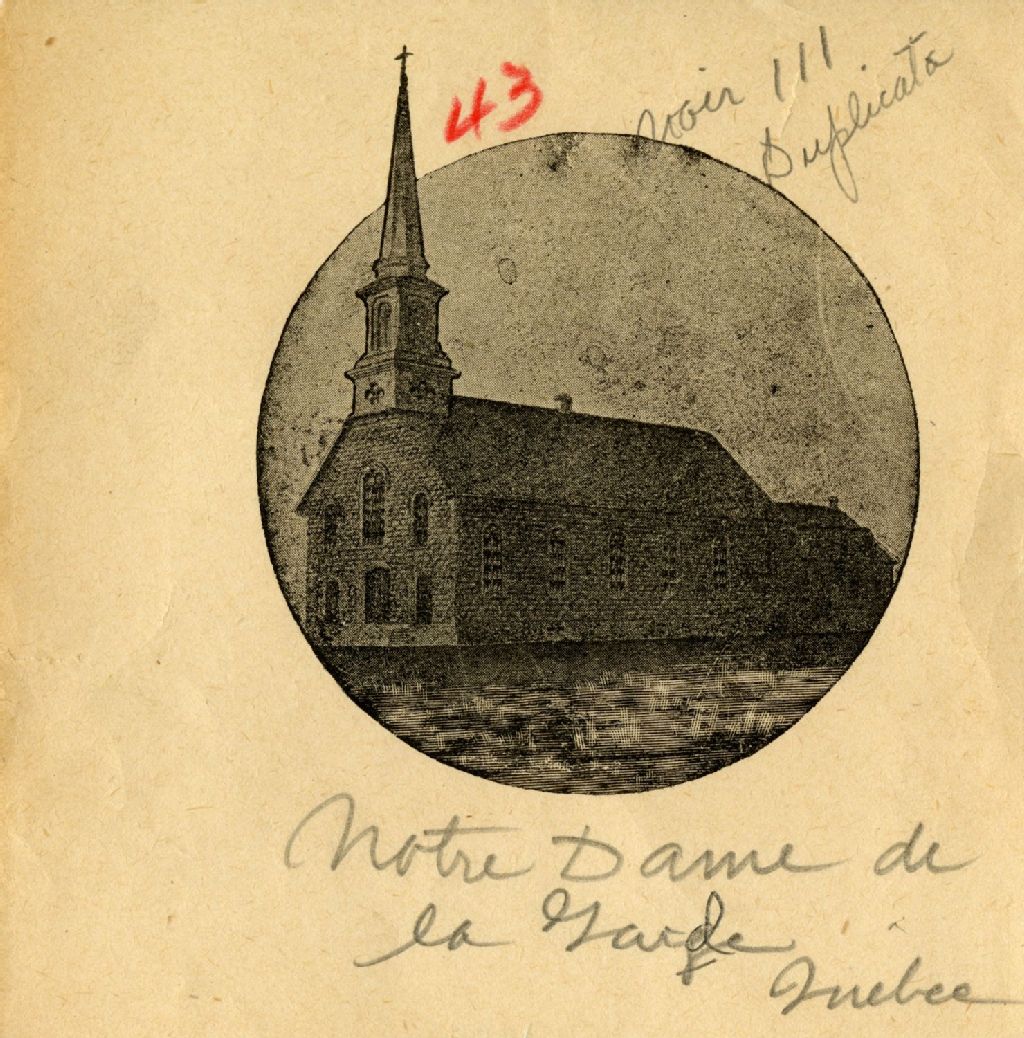 43
Voir 111
Duplicata
Notre Dame de
la Garde
Quebec